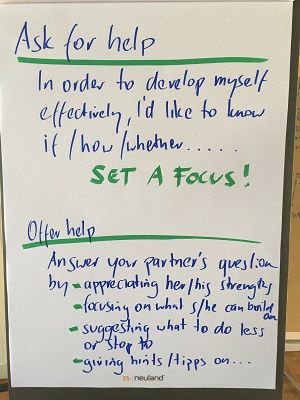 Ask for help
In order to develop myself
effectively, I'd like to know
if /how /whether.....
SET A FOCUS!
Offer help
Answer your partner's question
by - appreciating her/his strengths
- focusing on what s/he can build
on
- suggesting what to do less
or stop to
- giving hints/tipps on...
neuland